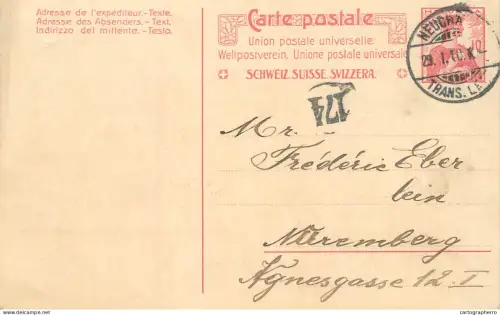 Adresse de l'expéditeur.-Texte.
Adresse des Absenders.-Text.
Indirizzo del mittente.-Testo.
Carte postale
Union postale universelle.
Weltpostverein. Unione postale universale
SCHWEIZ. SUISSE. SVIZZERA.
29. I. 10. X
TRANS. LE
174
Mr.
Frédéric Eber
lein
Nuremberg
Agnesgasse 12. I
delcampe.net
cartographerro